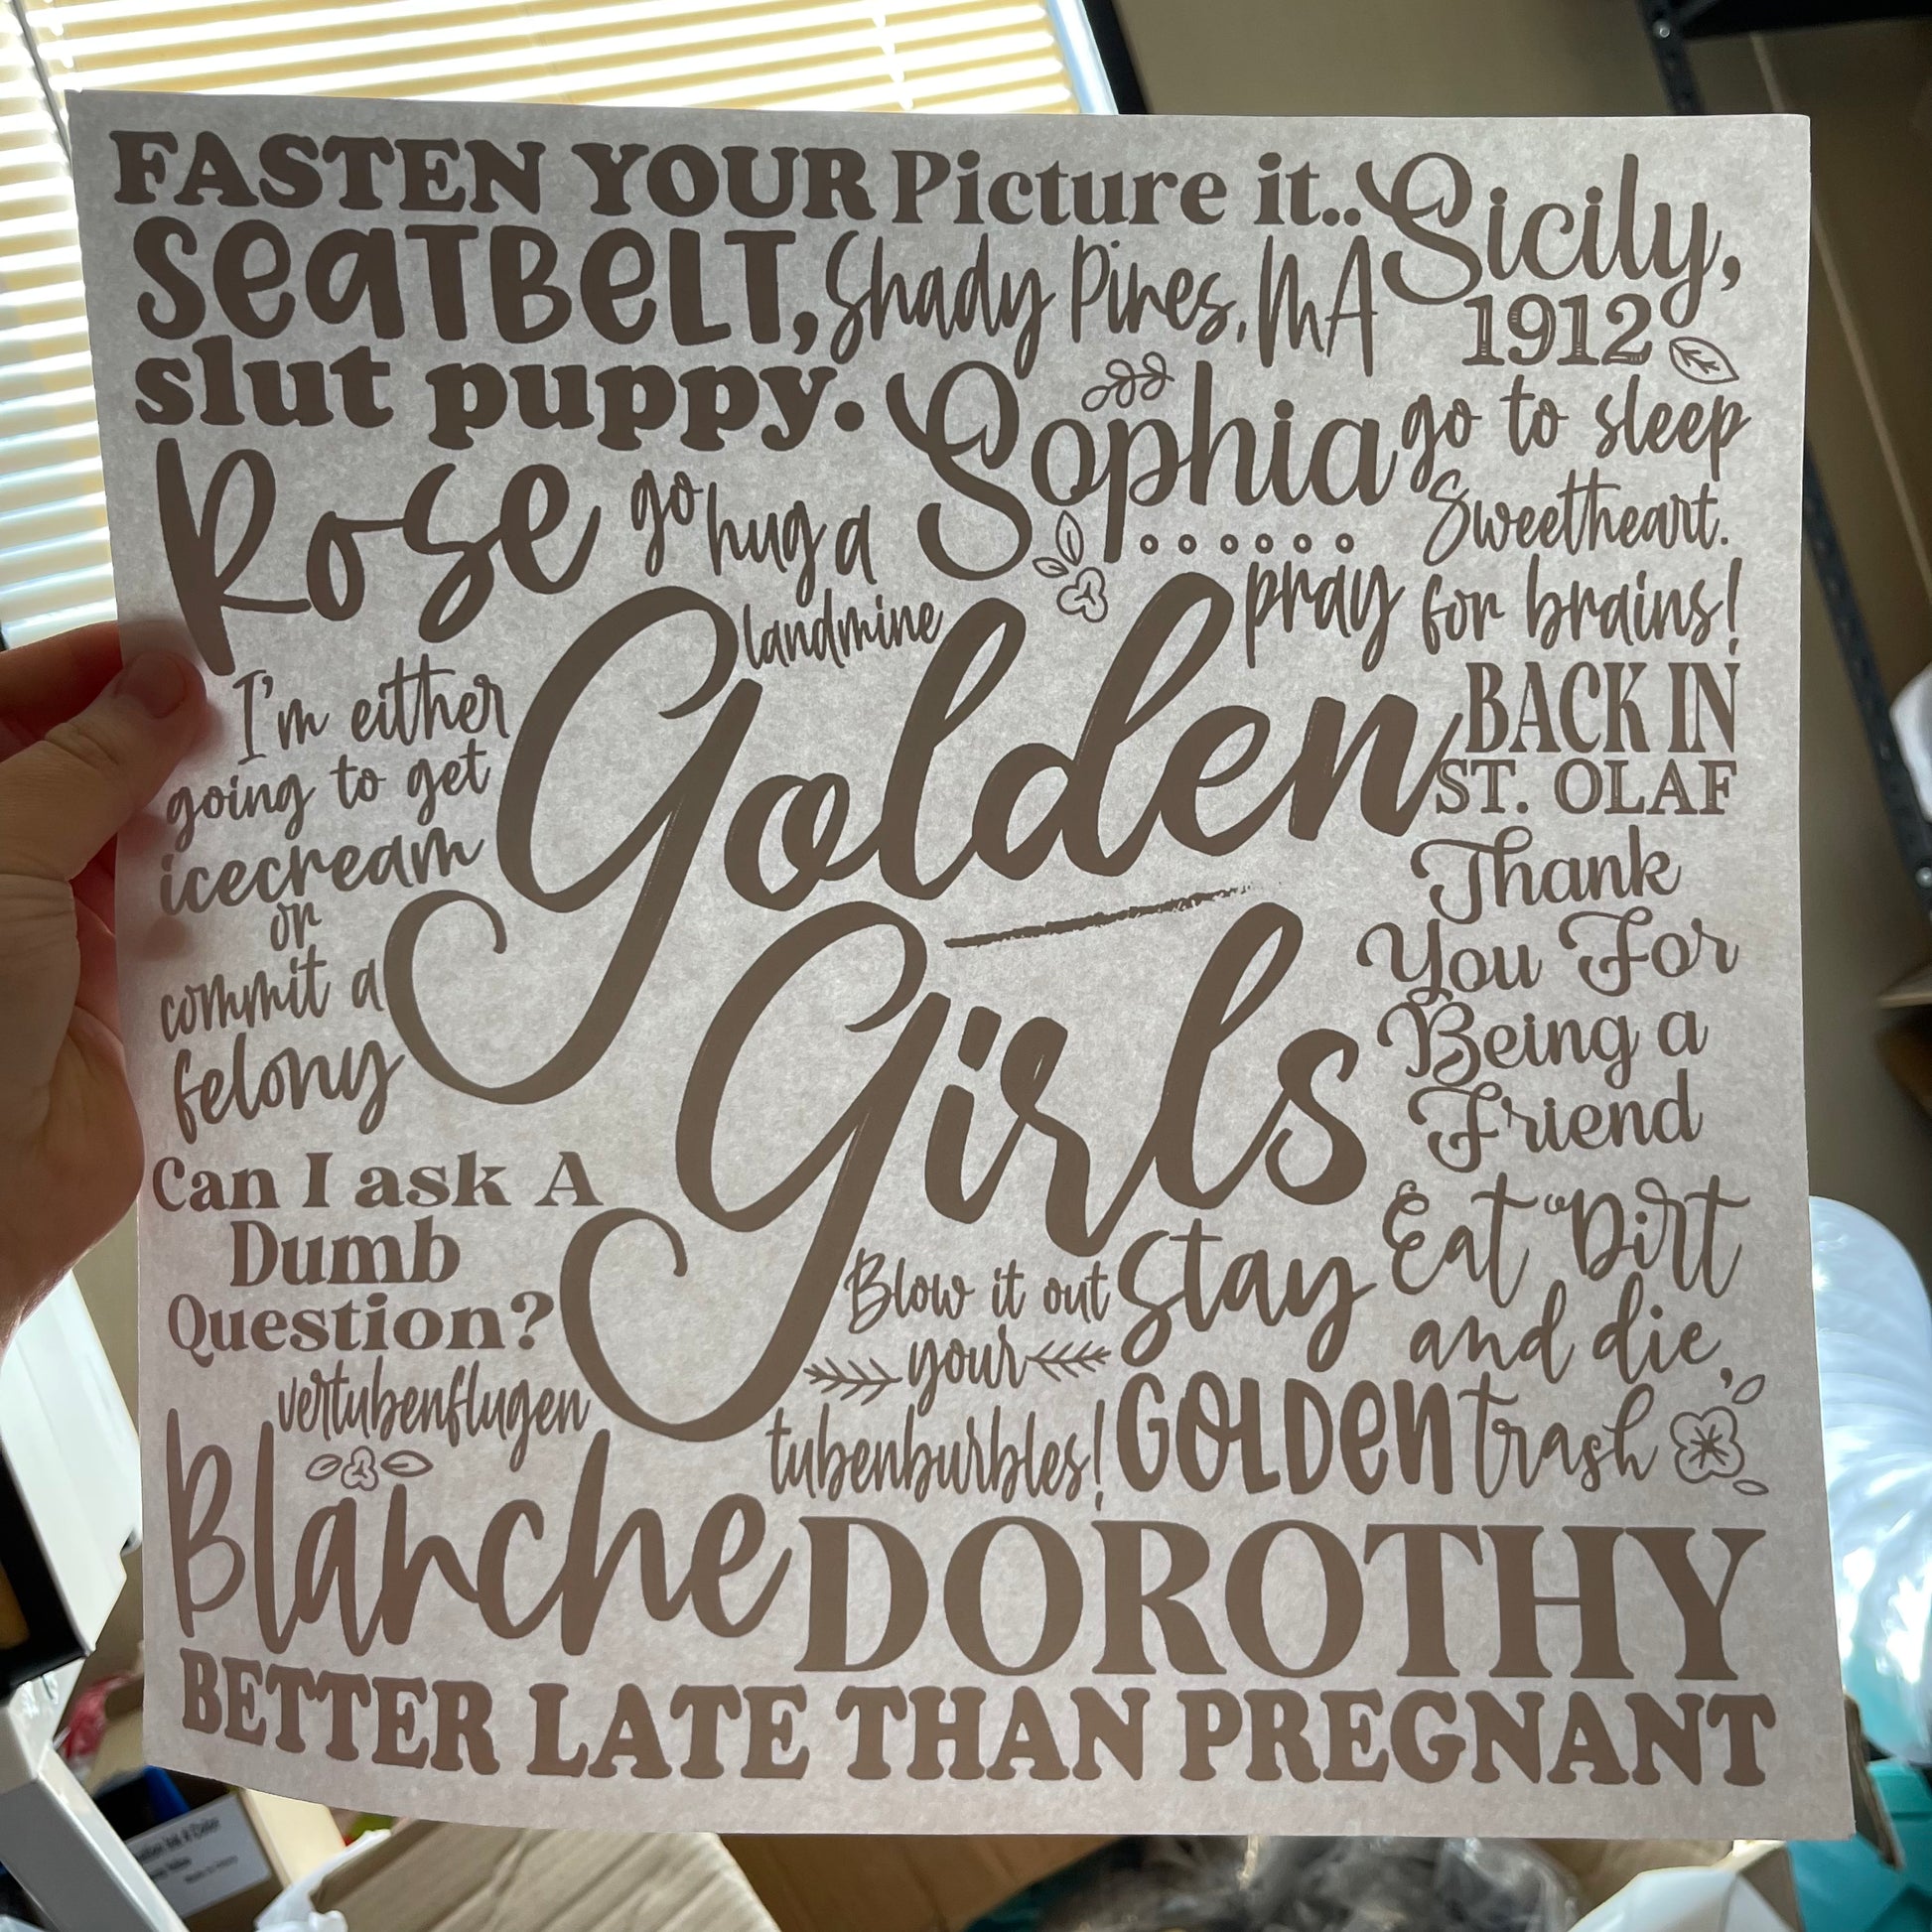 FASTEN YOUR
SeaTBeLT,
slut puppy.
Picture it..
Sicily,
1912
Shady Pines, MA
Sophia
go to sleep
Sweetheart.
pray for brains!
Rose
go hug a
landmine
Golden
Girls
I'm either
going to get
icecream
or
commit a
felony
BACK IN
ST. OLAF
Thank
You For
Being a
Friend
Can I ask A
Dumb
Question?
vertubenflugen
Blow it out
your
tubenburbles!
Stay
GOLDen
Eat Dirt
and die,
trash
Blanche
DOROTHY
BETTER LATE THAN PREGNANT